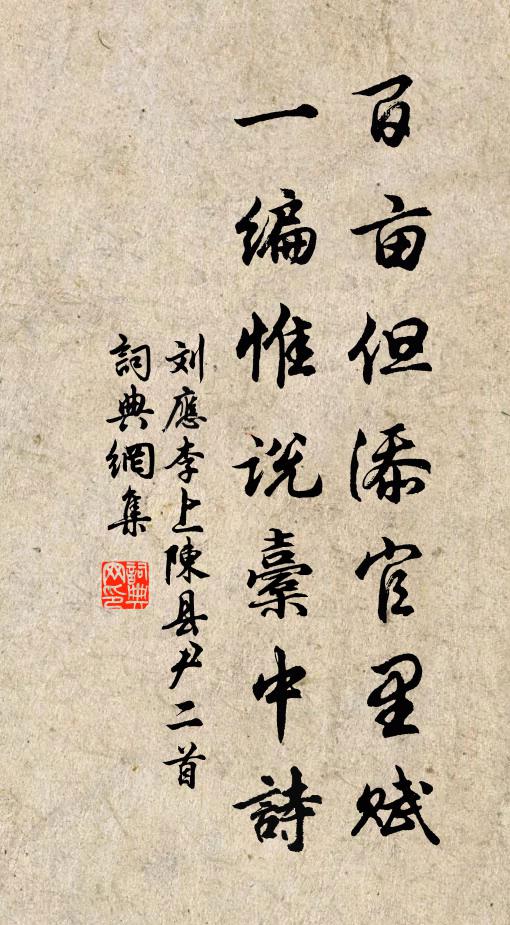 百亩但添官里赋
一编惟说橐中詩
刘應李上陳县尹二首
詞典網集
詞典
网印